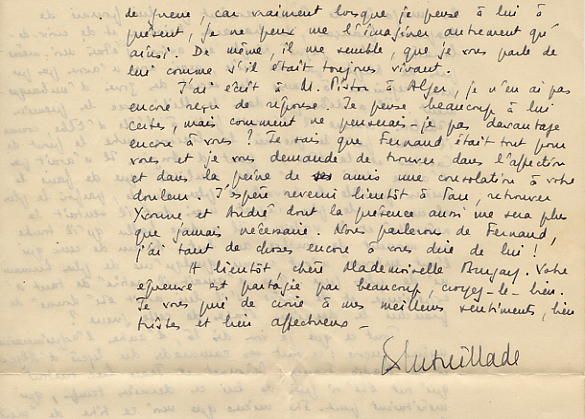 de guerre, car vraiment lorsque je pense à lui à
présent, je ne peux me l'imaginer autrement qu'
ainsi. De même, il me semble, que je vous parle de
lui comme s'il était toujours vivant.
J'ai écrit à M. Piston à Alger, je n'en ai pas
encore reçu de réponse. Je pense beaucoup à lui
certes, mais comment ne penserais-je pas davantage
encore à vous ? Je sais que Fernand était tout pour
vous et je vous demande de trouver dans l'affection
et dans la peine de ses amis une consolation à votre
douleur. J'espère revenir bientôt à Pau, retrouver
Yvonne et André dont la présence aussi me sera plus
que jamais nécessaire. Nous parlerons de Fernand,
j'ai tant de choses encore à vous dire de lui !
A bientôt, chère Mademoiselle Votre
épreuve est partagée par beaucoup, croyez-le bien.
Je vous prie de croire à mes meilleurs sentiments, bien
tristes et bien affectueux -